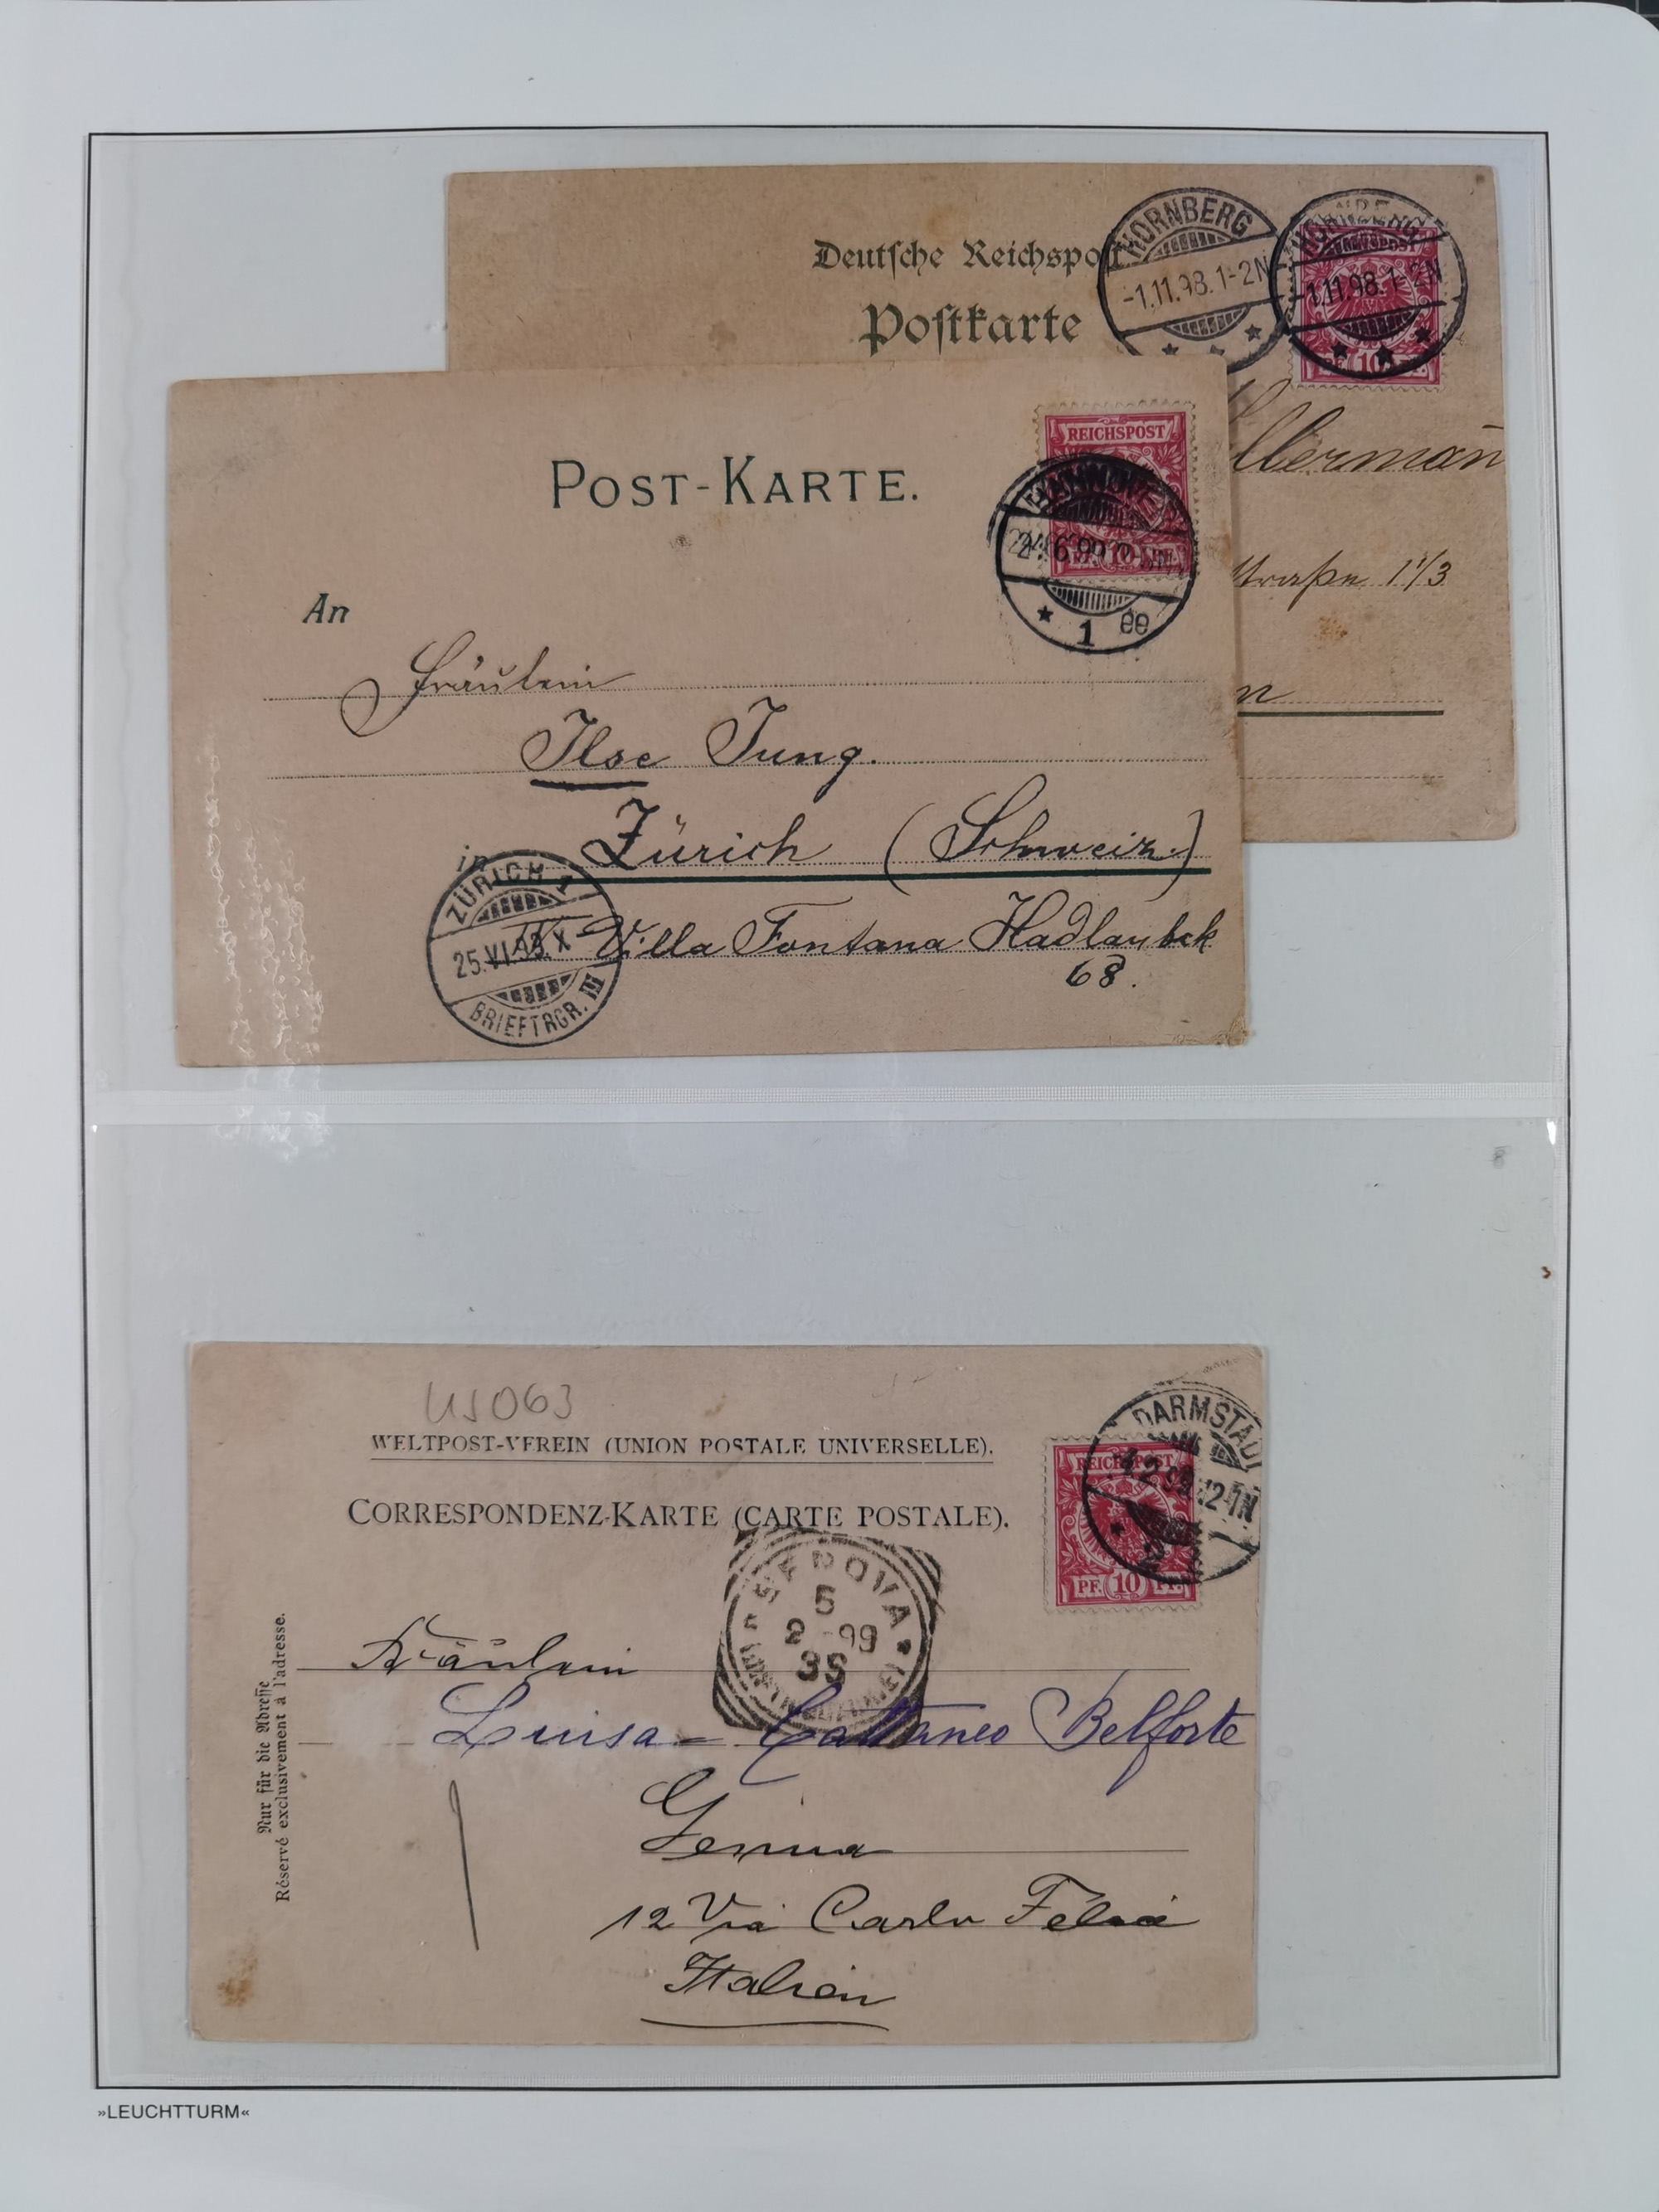 Deutsche Reichspost
Postkarte
HORNBERG
-1.11.98.1-2N
HORNBERG
1.11.98.1-2N
REICHSPOST
10
straße 11/3
POST-KARTE.
REICHSPOST
10
HANNOVER
24.6.99
1 ee
An
Fräulein
Ilse Jung.
in Zürich (Schweiz.)
Villa Fontana Hadlaubek
68.
ZÜRICH 1
25.VI.99.X
BRIEFTRGR. III
US063
WELTPOST-VEREIN (UNION POSTALE UNIVERSELLE).
CORRESPONDENZ-KARTE (CARTE POSTALE).
DARMSTADT
4.2.99.12-1N
REICHSPOST
PF. 10 PF.
5
2-99
3S
Nur für die Adresse
Réservé exclusivement à l'adresse.
Fräulein
Luisa - Cattaneo Belforte
Genua
12 Via Carlo Felice
Italien
»LEUCHTTURM«